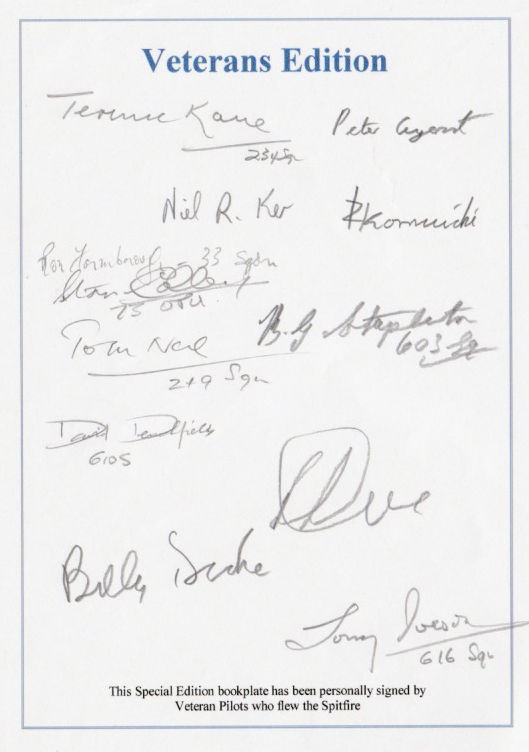 Veterans Edition
Terence Kane
234 Sqn
Peter Ayerst
Niel R. Ker
Kornicki
Ron 33 Sqdn
Stan
75 OTU.
Tom Neil
249 Sqn
B.G Stapleton
603 Sq
David Denchfield
610S
Billy Drake
Tony Iveson
616 Sqn
This Special Edition bookplate has been personally signed by
Veteran Pilots who flew the Spitfire